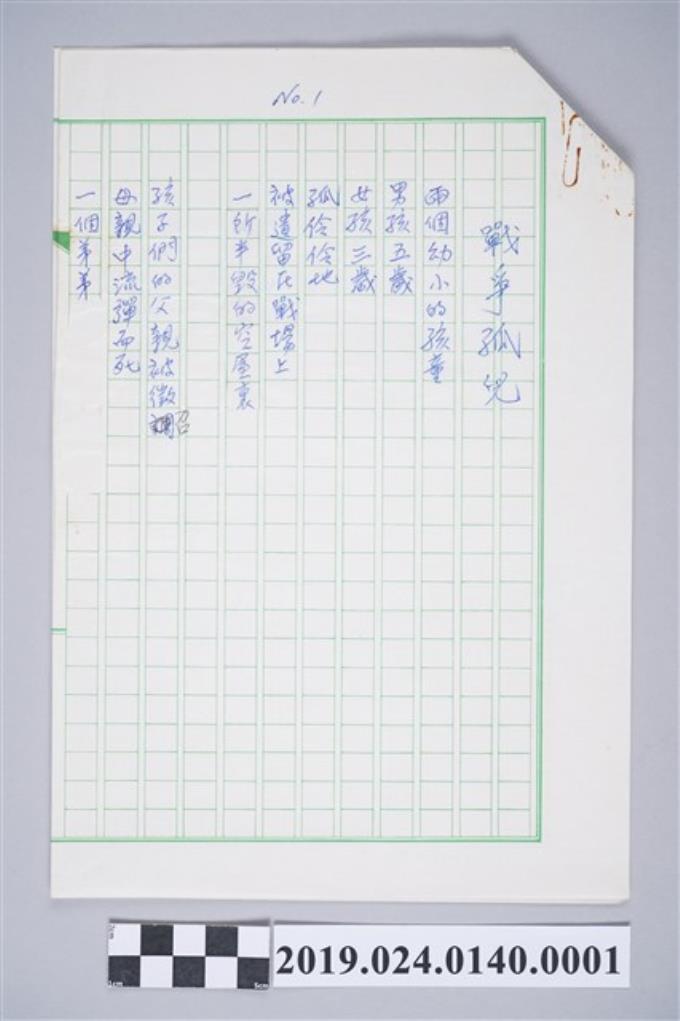 No.1
戰爭孤兒
兩個幼小的孩童
男孩五歲
女孩三歲
孤伶伶地
被遺留在戰場上
一所半毀的空屋裏
孩子們的父親被徵召
母親中流彈而死
一個弟弟
7cm
1cm
5cm
2019.024.0140.0001